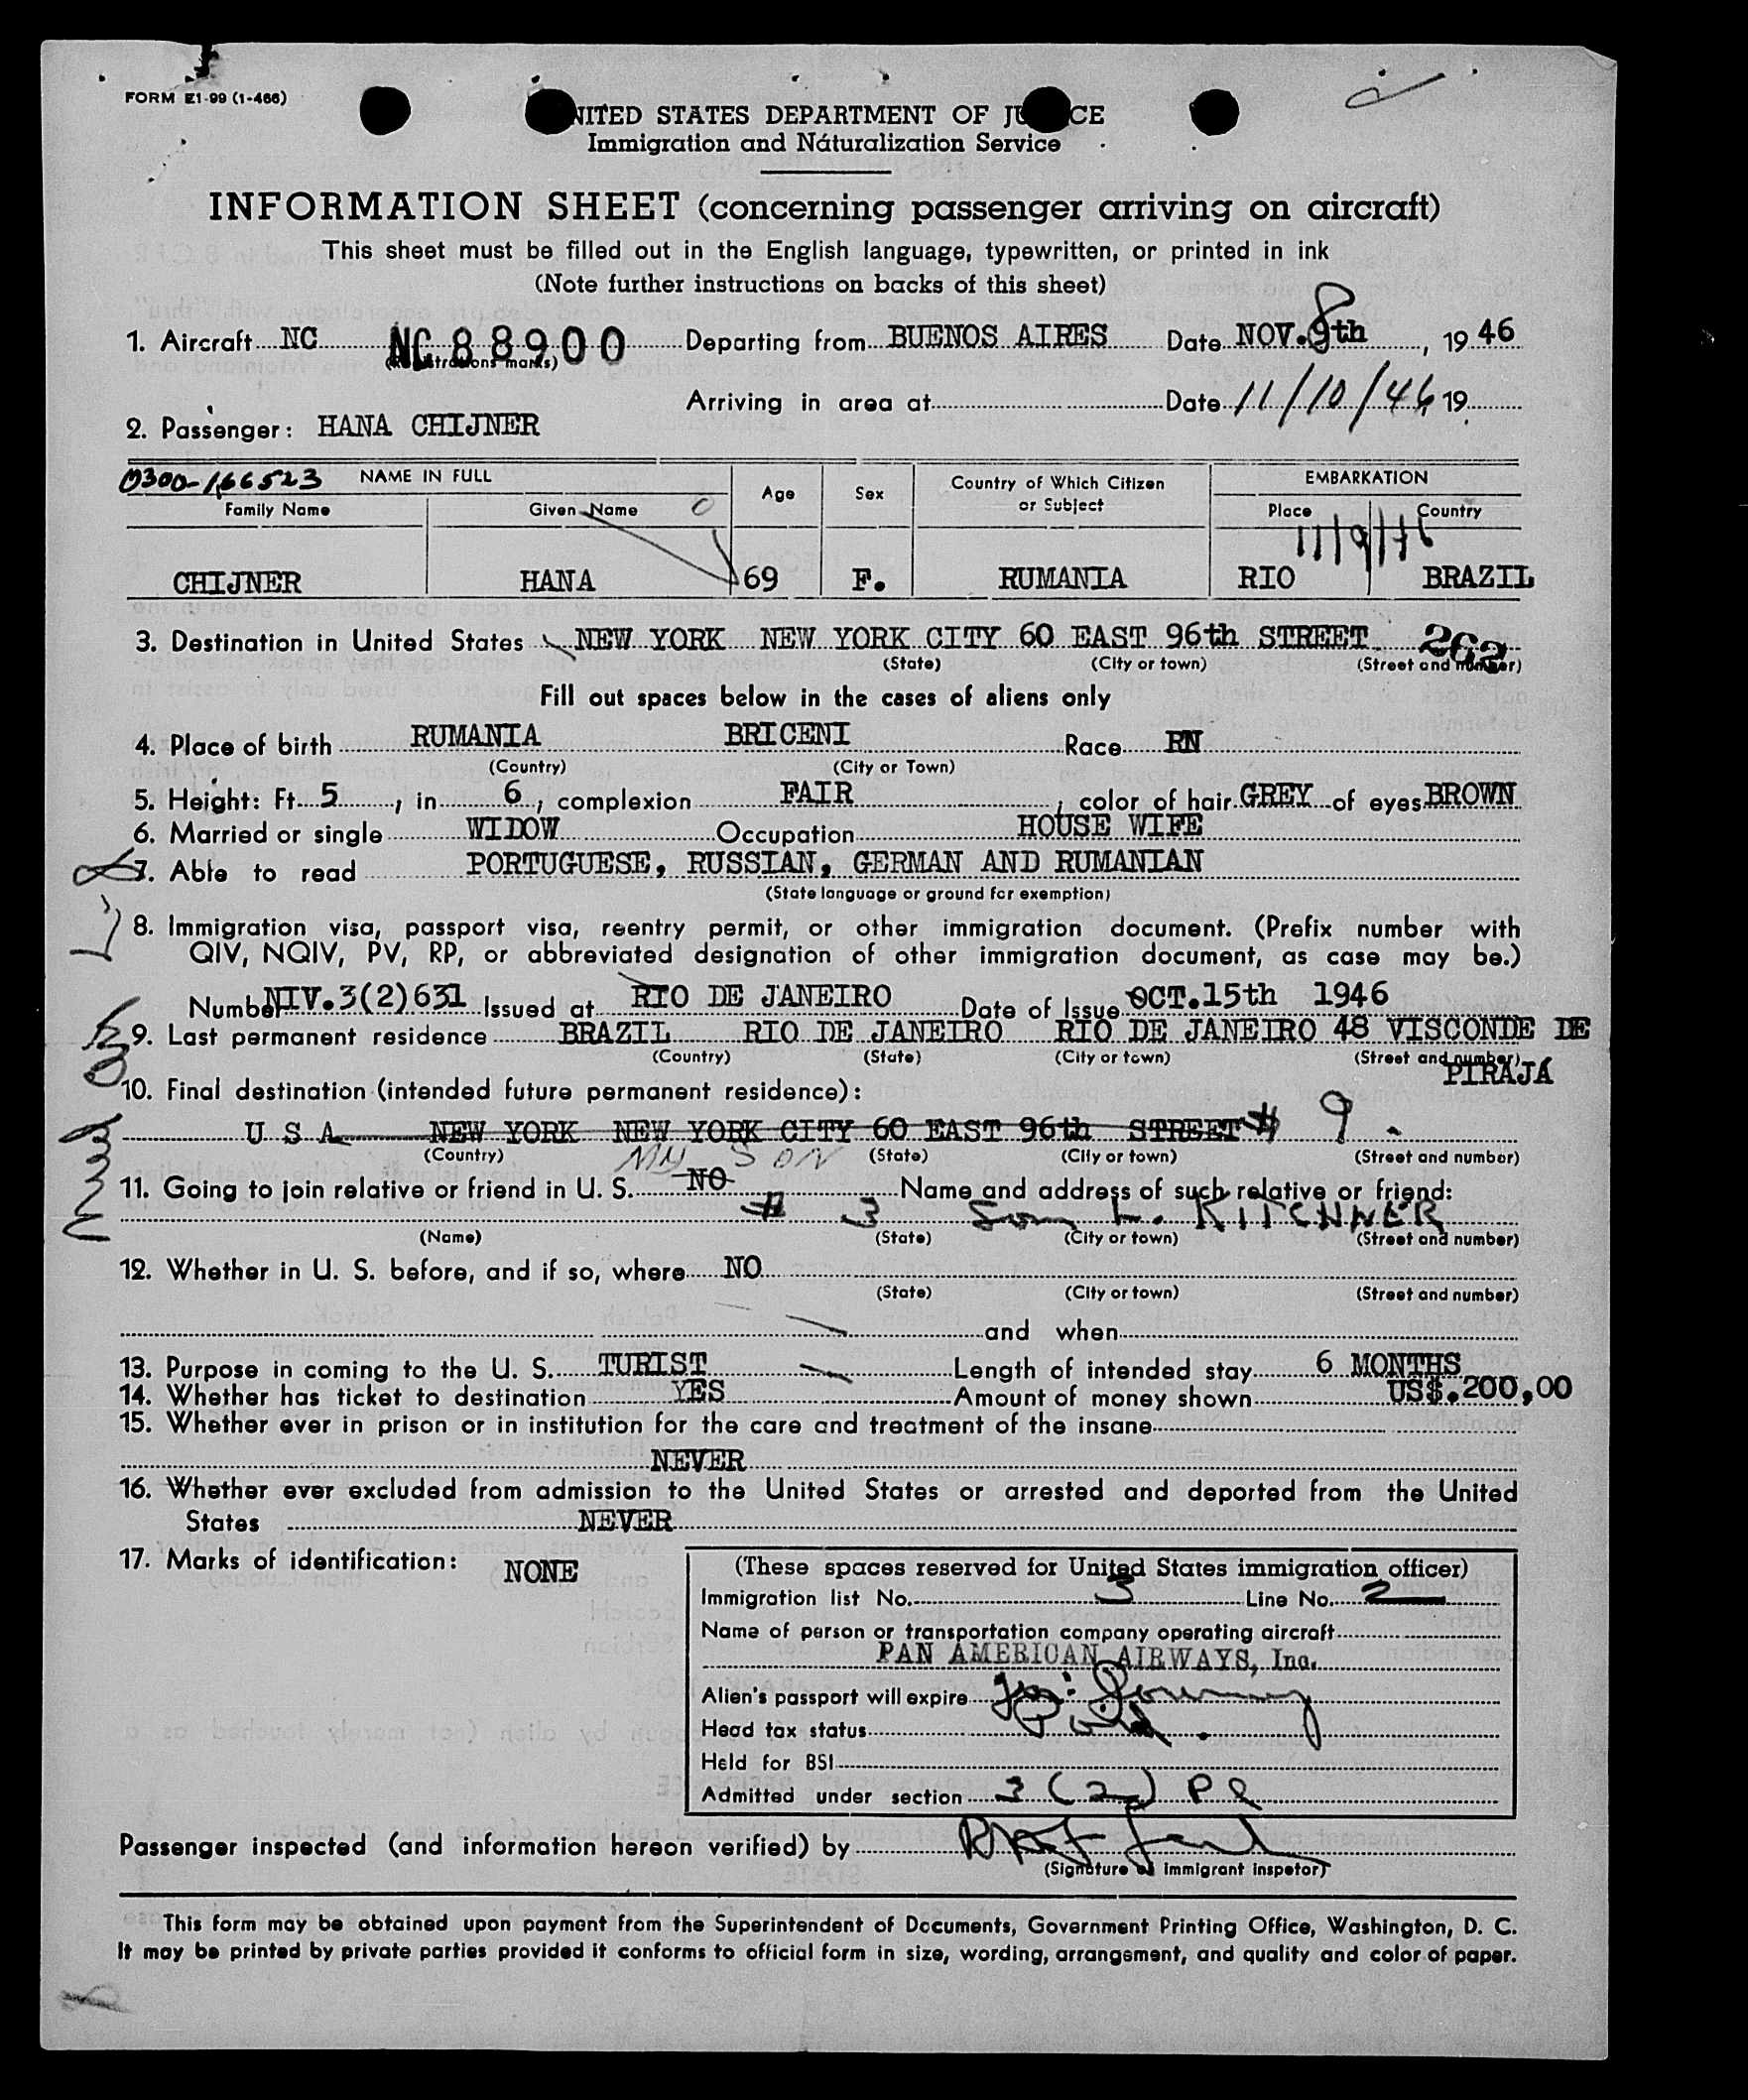 FORM E1-99 (1-466)
UNITED STATES DEPARTMENT OF JUSTICE
Immigration and Naturalization Service
INFORMATION SHEET (concerning passenger arriving on aircraft)
This sheet must be filled out in the English language, typewritten, or printed in ink
(Note further instructions on backs of this sheet)
1. Aircraft NC NC 88900 Departing from BUENOS AIRES Date NOV. 9th 8, 19 46
(Registrations marks)
Arriving in area at Date 11/10/46, 19
2. Passenger: HANA CHIJNER
0300-166523 NAME IN FULL Age Sex Country of Which Citizen or Subject EMBARKATION
Family Name Given Name Place Country
11/9/46
CHIJNER HANA 69 F. RUMANIA RIO BRAZIL
3. Destination in United States NEW YORK NEW YORK CITY 60 EAST 96th STREET 262
(State) (City or town) (Street and number)
Fill out spaces below in the cases of aliens only
4. Place of birth RUMANIA BRICENI Race RN
(Country) (City or Town)
5. Height: Ft. 5, in 6, complexion FAIR; color of hair GREY of eyes BROWN
6. Married or single WIDOW Occupation HOUSE WIFE
7. Able to read PORTUGUESE, RUSSIAN, GERMAN AND RUMANIAN
(State language or ground for exemption)
8. Immigration visa, passport visa, reentry permit, or other immigration document. (Prefix number with
QIV, NQIV, PV, RP, or abbreviated designation of other immigration document, as case may be.)
Number NIV.3(2)631 Issued at RIO DE JANEIRO Date of Issue OCT.15th 1946
9. Last permanent residence BRAZIL RIO DE JANEIRO RIO DE JANEIRO 48 VISCONDE DE
(Country) (State) (City or town) (Street and number)
PIRAJÁ
10. Final destination (intended future permanent residence):
U S A NEW YORK NEW YORK CITY 60 EAST 96th STREET # 9.
(Country) (State) (City or town) (Street and number)
MY SON
11. Going to join relative or friend in U. S. NO Name and address of such relative or friend:
# 3 Son L. KITCHNER
(Name) (State) (City or town) (Street and number)
12. Whether in U. S. before, and if so, where NO
(State) (City or town) (Street and number)
and when
13. Purpose in coming to the U. S. TURIST Length of intended stay 6 MONTHS
14. Whether has ticket to destination YES Amount of money shown US$.200,00
15. Whether ever in prison or in institution for the care and treatment of the insane
NEVER
16. Whether ever excluded from admission to the United States or arrested and deported from the United
States NEVER
17. Marks of identification: NONE
(These spaces reserved for United States immigration officer)
Immigration list No. 3 Line No. 2
Name of person or transportation company operating aircraft
PAN AMERICAN AIRWAYS, Inc.
Alien's passport will expire
Head tax status
Held for BSI
Admitted under section 3 (2) P R
Passenger inspected (and information hereon verified) by
(Signature of immigrant inspetor)
This form may be obtained upon payment from the Superintendent of Documents, Government Printing Office, Washington, D. C.
It may be printed by private parties provided it conforms to official form in size, wording, arrangement, and quality and color of paper.